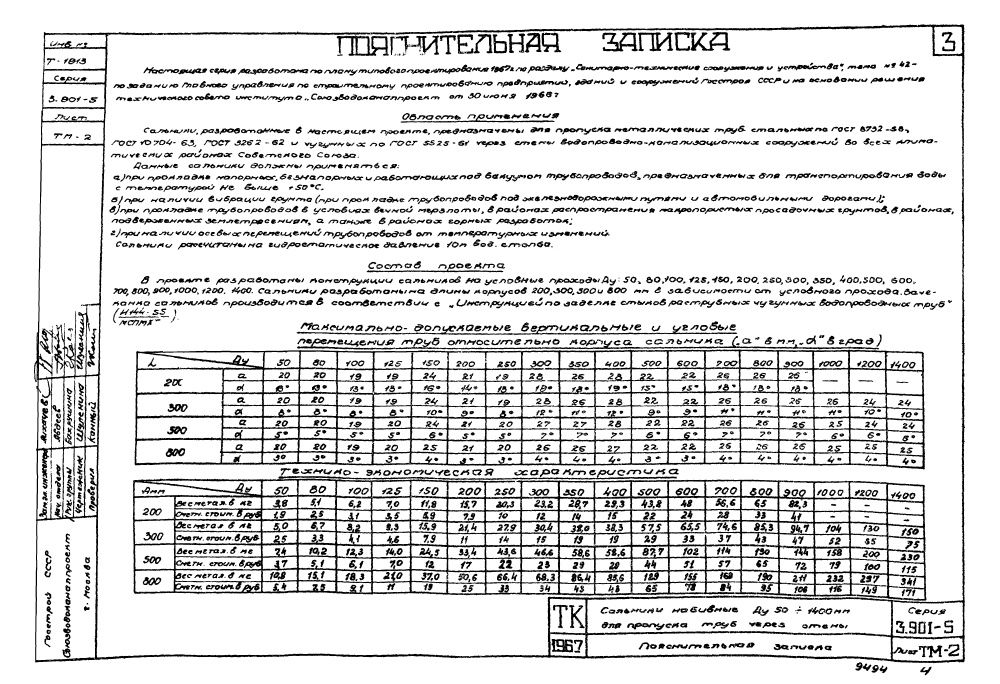 ПОЯСНИТЕЛЬНАЯ ЗАПИСКА
3
ИНВ. №
Т-1913
Серия
3.901-5
Лист
ТМ-2
Настоящая серия разработана по плану типового проектирования 1967г. по разделу „Санитарно-технические сооружения и устройства", тема №42-
по заданию Главного управления по строительному проектированию предприятий, зданий и сооружений Госстроя СССР и на основании решения
технического совета института „Союзводоканалпроект от 30 июня 1968г
Область применения
Сальники, разработанные в настоящем проекте, предназначены для пропуска металлических труб стальных по ГОСТ 8732-58,
ГОСТ 10704-63, ГОСТ 3262-62 и чугунных по ГОСТ 5525-61 через стены водопроводно-канализационных сооружений во всех клима-
тических районах Советского Союза.
Данные сальники должны применяться:
а) при прокладке напорных, безнапорных и работающих под вакуумом трубопроводов, предназначенных для транспортирования воды
с температурой не выше +50°С.
б) при наличии вибрации грунта (при прокладке трубопроводов под железнодорожными путями и автомобильными дорогами);
в) при прокладке трубопроводов в условиях вечной мерзлоты, в районах распространения макропористых просадочных грунтов, в районах,
подверженных землетрясениям, а также в районах горных разработок;
г) при наличии осевых перемещений трубопроводов от температурных изменений.
Сальники рассчитаны на гидростатическое давление 10м вод. столба.
Состав проекта
В проекте разработаны конструкции сальников на условные проходы Ду: 50, 80, 100, 125, 150, 200, 250, 300, 350, 400, 500, 600,
700, 800, 900, 1000, 1200, 1400. Сальники разработаны на длины корпусов 200, 300, 500 и 800 мм в зависимости от условного прохода. Заче-
канка сальников производится в соответствии с „Инструкцией по заделке стыков раструбных чугунных водопроводных труб"
(И144-55 / МСПМХП).
Максимально-допускаемые вертикальные и угловые
перемещения труб относительно корпуса сальника („а" в мм, „α" в град)
L Ду 50 80 100 125 150 200 250 300 350 400 500 600 700 800 900 1000 1200 1400
200 а 20 20 19 19 24 21 19 28 26 28 22 22 26 26 26 — — —
α 13° 13° 13° 16° 14° 13° 18° 18° 19° 15° 15° 18° 18° 18° — — —
300 а 20 20 19 19 24 21 19 28 26 28 22 22 26 26 26 26 24 24
α 8° 8° 8° 8° 10° 9° 8° 12° 11° 12° 9° 9° 11° 11° 11° 11° 10° 10°
500 а 20 20 19 20 24 21 20 27 27 28 22 22 26 26 26 25 24 24
α 5° 5° 5° 5° 6° 5° 5° 7° 7° 7° 6° 6° 7° 7° 7° 6° 6° 6°
800 а 20 20 19 20 25 21 20 26 26 27 22 22 26 26 26 25 25 25
α 3° 3° 3° 3° 4° 3° 3° 4° 4° 4° 3° 3° 4° 4° 4° 4° 4° 4°
Технико-экономическая характеристика
Lмм Ду 50 80 100 125 150 200 250 300 350 400 500 600 700 800 900 1000 1200 1400
200 Вес метал. в кг 3,8 5,1 6,2 7,0 11,8 15,7 20,3 23,2 28,7 29,3 43,8 48 56,6 65 82,3 — — —
Сметн. стоим. в руб 1,9 2,5 3,1 3,5 5,9 7,9 10 12 14 15 22 24 28 33 41 — — —
300 Вес метал. в кг 5,0 6,7 8,2 9,3 15,9 21,4 27,9 30,4 38,0 38,3 57,5 65,5 74,6 85,3 94,7 104 130 150
Сметн. стоим. в руб 2,5 3,3 4,1 4,6 7,9 11 14 15 19 19 29 33 37 43 47 52 65 75
500 Вес метал. в кг 7,4 10,2 12,3 14,0 24,5 33,4 43,6 46,6 58,6 58,6 87,7 102 114 130 144 158 200 230
Сметн. стоим. в руб 3,7 5,1 6,1 7,0 12 17 22 23 29 29 44 51 57 65 72 79 100 115
800 Вес метал. в кг 10,8 15,1 18,3 21,0 37,0 50,6 66,4 68,3 86,4 85,6 129 155 168 190 211 232 297 341
Сметн. стоим. в руб 5,4 7,5 9,1 11 19 25 33 34 43 43 65 78 84 95 106 116 149 171
Госстрой СССР
Союзводоканалпроект
г. Москва
ТК
1967
Сальники набивные Ду 50 ÷ 1400мм
для пропуска труб через стены
Пояснительная записка
Серия
3.901-5
Лист ТМ-2
9494 4